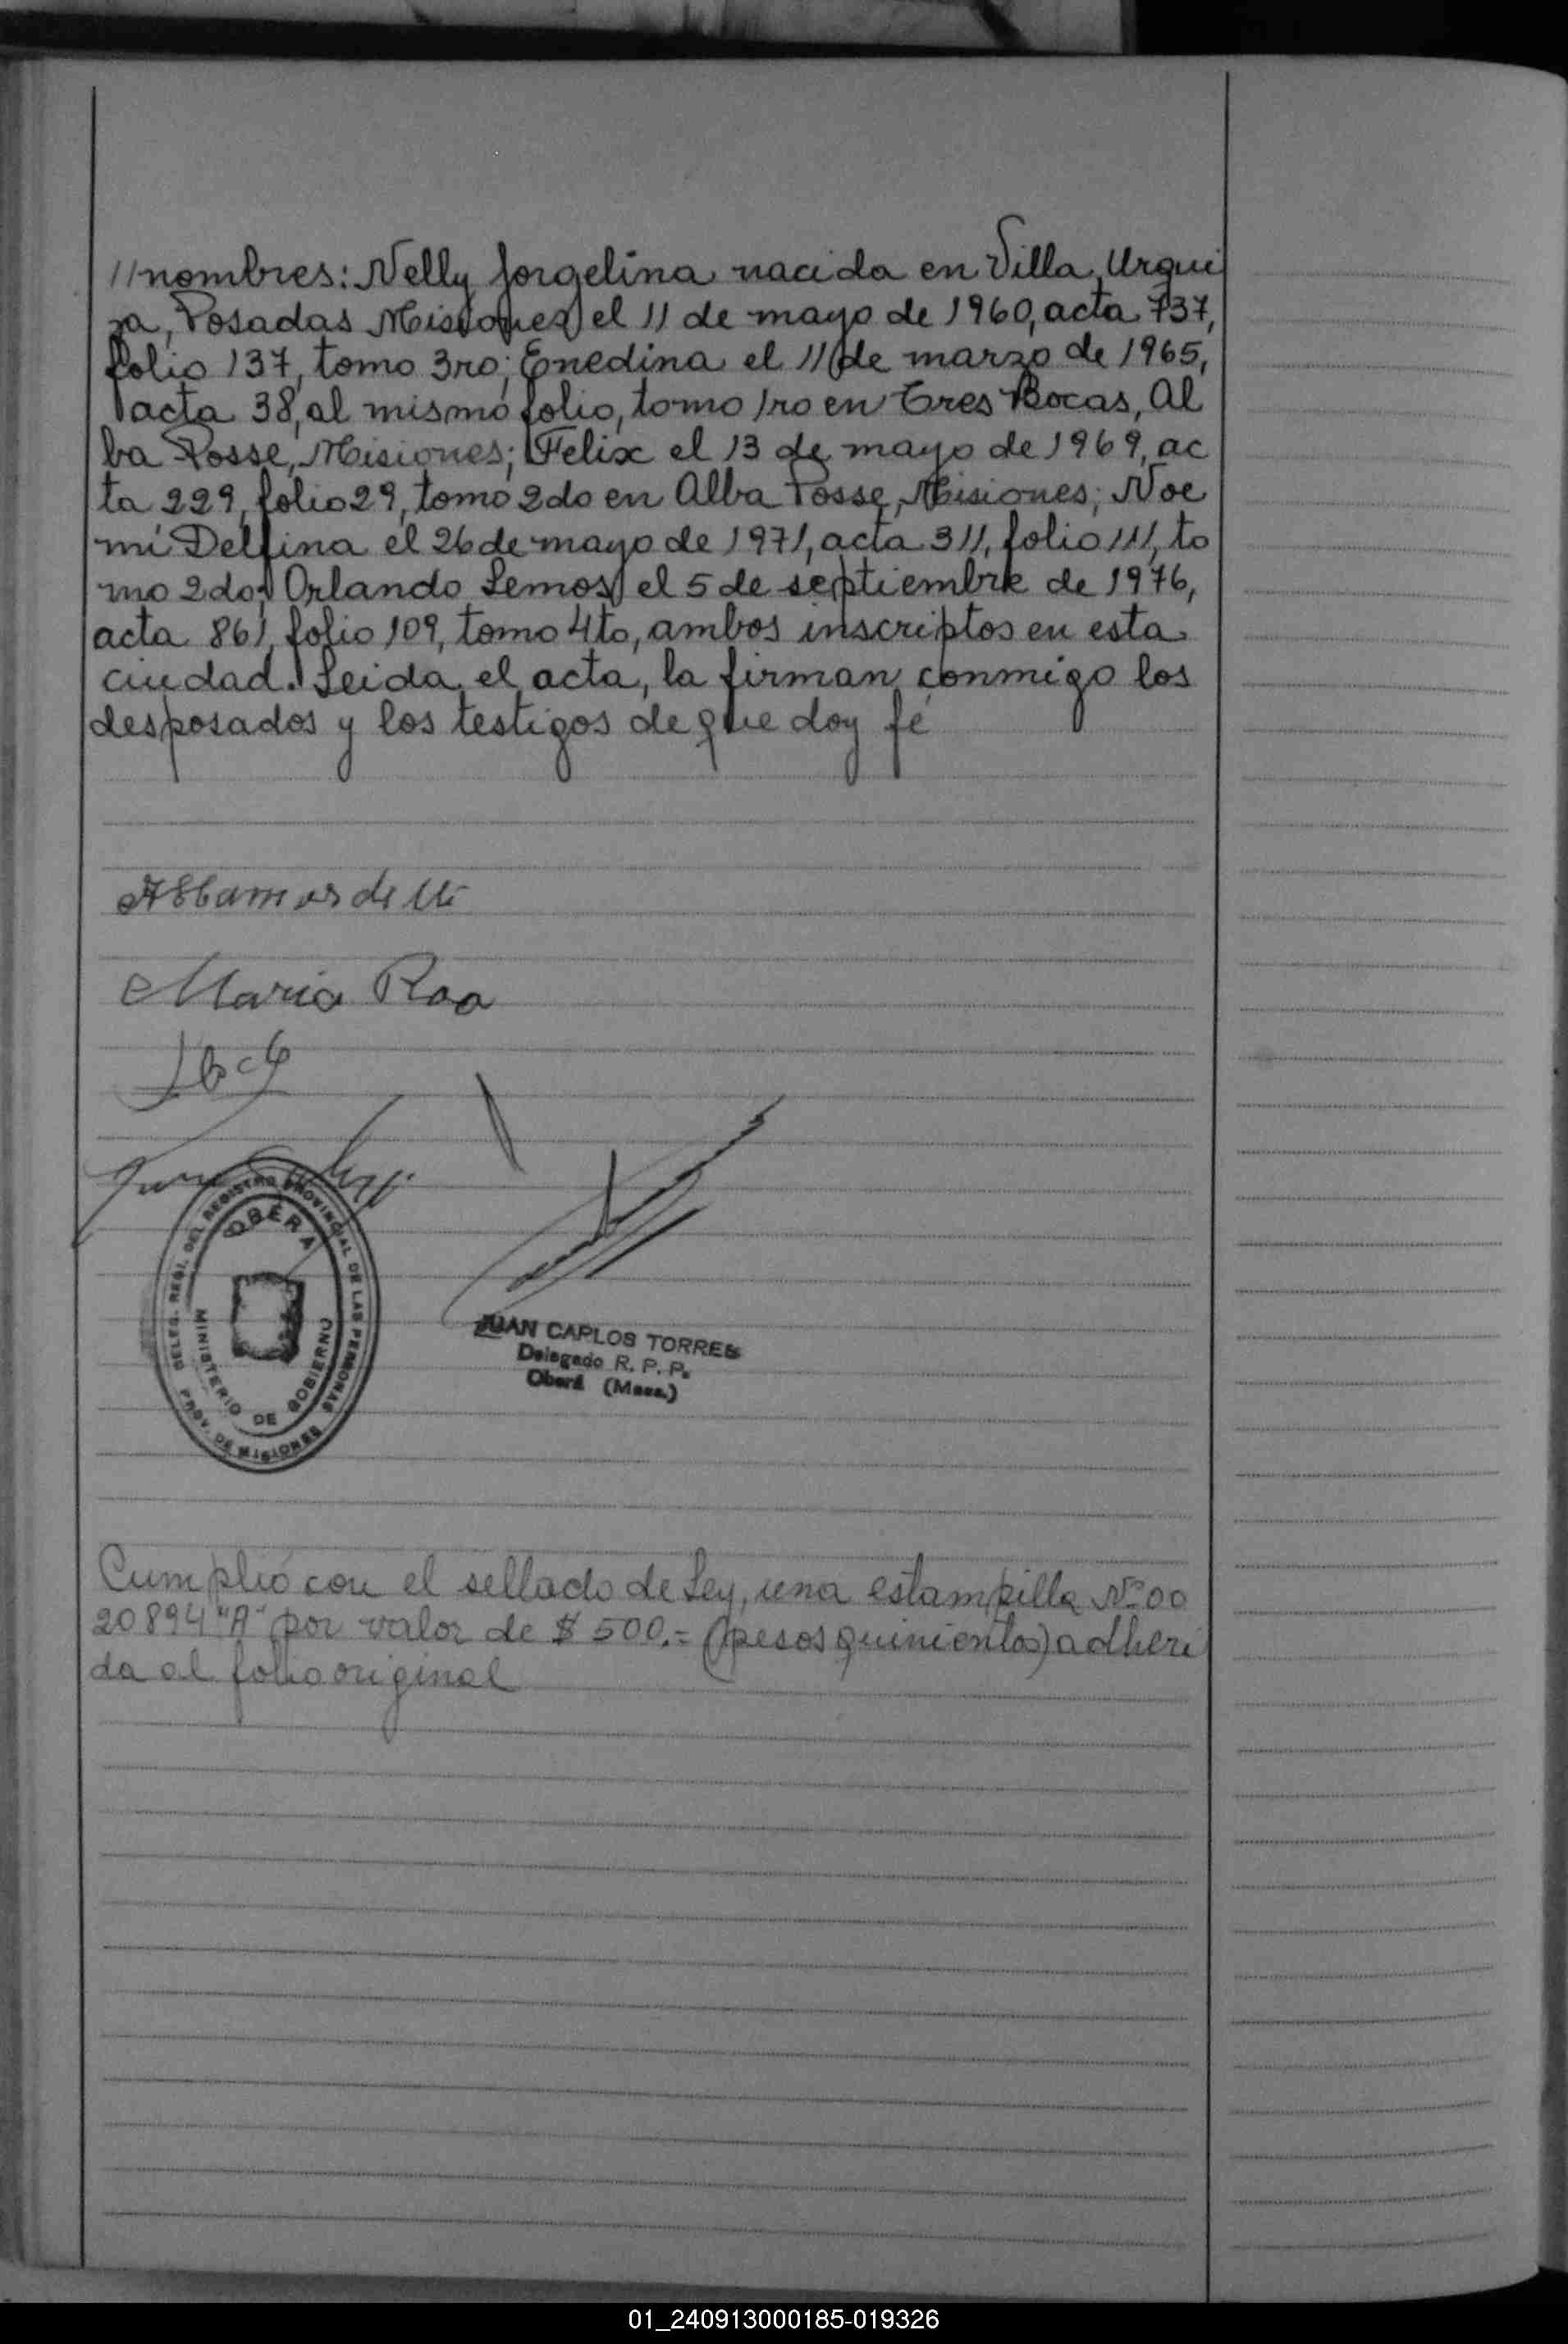 //nombres: Nelly Jorgelina nacida en Villa Urqui
za, Posadas Misiones el 11 de mayo de 1960, acta 737,
folio 137, tomo 3ro; Enedina el 11 de marzo de 1965,
acta 38, al mismo folio, tomo 1ro en Tres Bocas, Al
ba Posse, Misiones; Felix el 13 de mayo de 1969, ac
ta 229, folio 29, tomo 2do en Alba Posse, Misiones; Noe
mí Delfina el 26 de mayo de 1971, acta 311, folio 111, to
mo 2do; Orlando Lemos el 5 de septiembre de 1976,
acta 861, folio 109, tomo 4to, ambos inscriptos en esta
ciudad. Leida el acta, la firman conmigo los
desposados y los testigos de que doy fé
Maria Roa
DELEG. REGI. DEL REGISTRO PROVINCIAL DE LAS PERSONAS
OBERA
MINISTERIO DE GOBIERNO
PROV. DE MISIONES
JUAN CARLOS TORRES
Delegado R. P. P.
Oberá (Mnes.)
Cumplió con el sellado de Ley, una estampilla Nº 00
20894 "A" por valor de $ 500.= (pesos quinientos) adheri
da al folio original
01_240913000185-019326